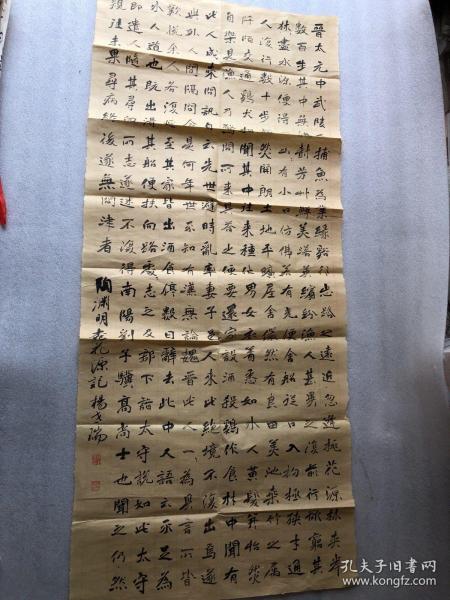 晉太元中武陵人捕魚為業緣谿行忘路之遠近忽逢桃花源林夾岸
數百步其中無雜樹芳草鮮美落英繽紛漁人甚異之復前行欲窮其
林盡水源便得一山有小口仿佛若有光便舍船從口入初極狹才通
人復行數十步豁然開朗土地平曠屋舍儼然有良田美池桑竹之屬
阡陌交通鷄犬相聞其中往來種作男女衣著悉如外人黃髮并怡然
自樂見漁人乃驚問所來具答之便要還家設酒殺鷄作食村中聞有
此人咸來問訊自云先世避秦時亂率妻子邑人來此絕境不復出焉遂
與外人間隔問今是何世乃不知有漢無論魏晉此人一一為具言所皆
歎惋余人各復延至其家皆出酒食停數日辭去此中人語云不足為
外人道也既出得其船便扶向路處處志之及郡下詣太守說如此太守
即遣人隨其尋向所志遂迷不復得南陽劉子驥高尚士也聞之欣然
規往未果尋病終後遂無問津者
陶淵明桃花源記楊瑞
孔夫子旧书网